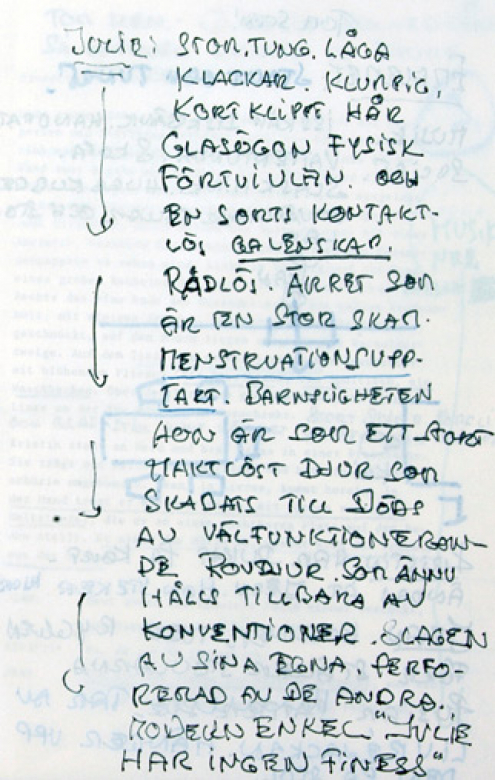 JULIE: STOR. TUNG. LÅGA
KLACKAR. KLUMPIG.
KORTKLIPPT HÅR
GLASÖGON FYSISK
FÖRTVIVLAN. OCH
EN SORTS KONTAKT-
LÖS GALENSKAP.
RÅDLÖS ÄRRET SOM
ÄR EN STOR SKAM.
MENSTRUATIONSUPP-
TAKT. BARNSLIGHETEN
HON ÄR SOM ETT STORT
MAKTLÖST DJUR SOM
SKADATS TILL DÖDS
AV VÄLFUNKTIONERAN-
DE ROVDJUR SOM ÄNNU
HÅLLS TILLBAKA AV
KONVENTIONER. SLAGEN
AV SINA EGNA. PERFO-
RERAD AV DE ANDRA.
MODERN ENKEL. "JULIE
HAR INGEN FINESS"